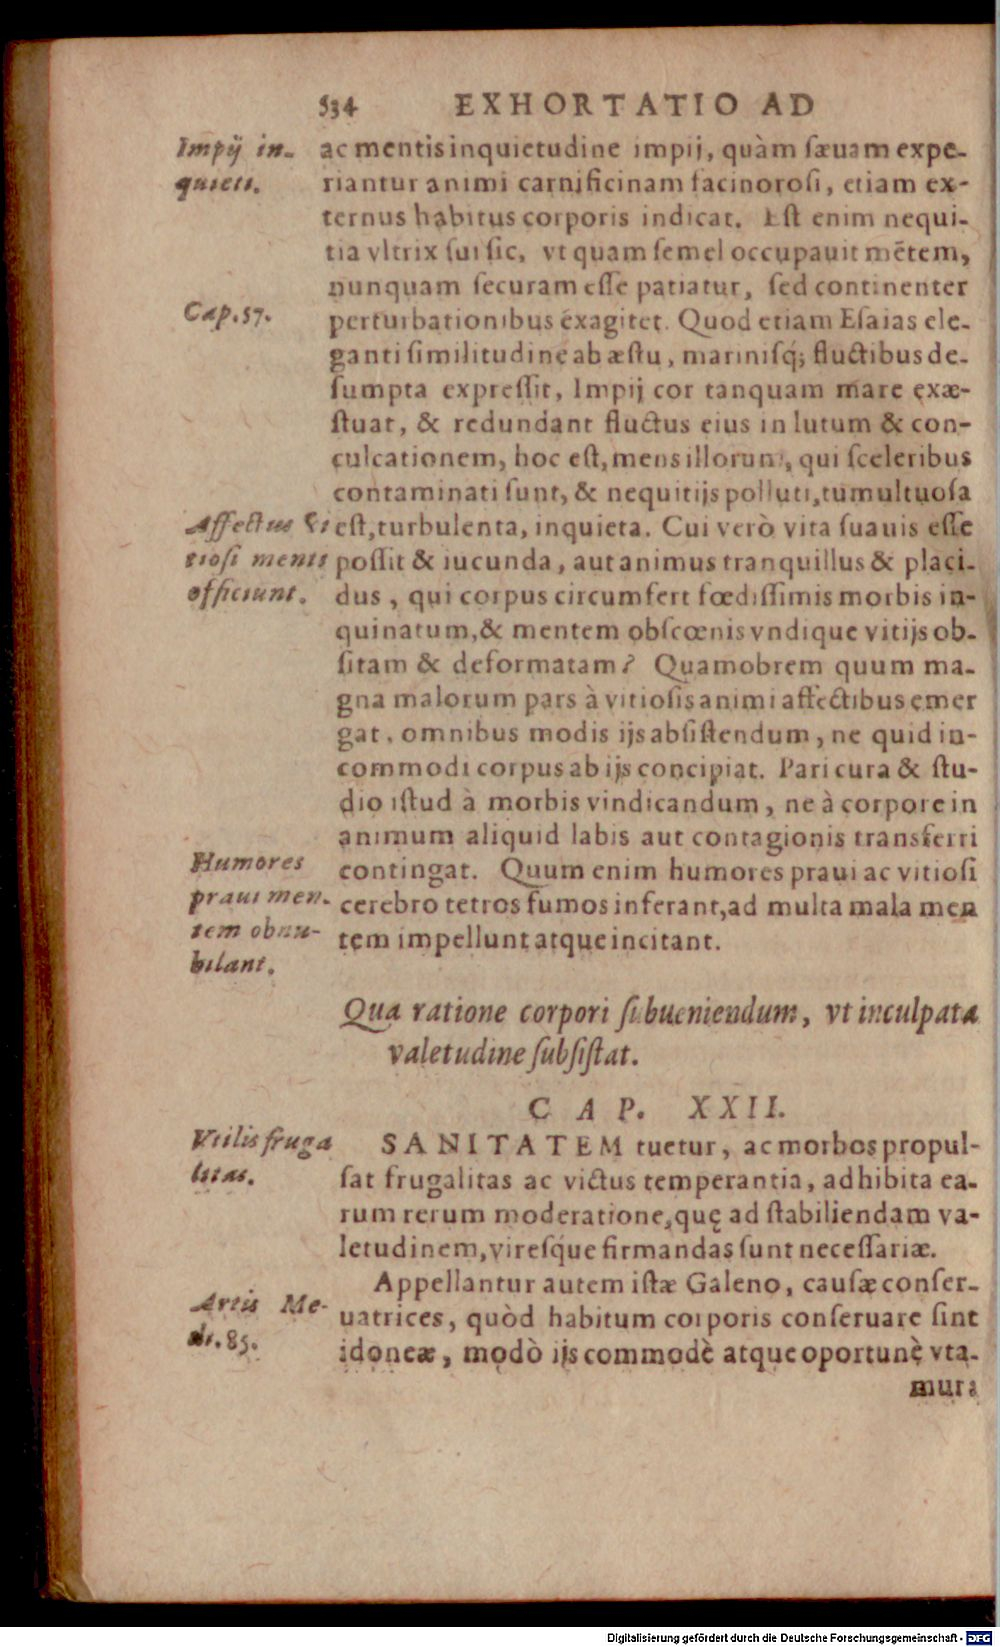 534 EXHORTATIO AD
Impij in-
quieti.
ac mentis inquietudine impij, quàm ſæuam expe-
riantur animi carnificinam facinoroſi, etiam ex-
ternus habitus corporis indicat. Eſt enim nequi-
tia vltrix ſui ſic, vt quam ſemel occupauit mẽtem,
nunquam ſecuram eſſe patiatur, ſed continenter
Cap.57.
perturbationibus exagitet. Quod etiam Eſaias ele-
ganti ſimilitudine ab æſtu, marinisq́; fluctibus de-
ſumpta expreſſit, Impij cor tanquam mare exæ-
ſtuat, & redundant fluctus eius in lutum & con-
culcationem, hoc eſt, mens illorum, qui ſceleribus
contaminati ſunt, & nequitijs polluti, tumultuoſa
Affectus vi
tioſi menti
officiunt.
eſt, turbulenta, inquieta. Cui verò vita ſuauis eſſe
poſſit & iucunda, aut animus tranquillus & placi-
dus, qui corpus circumfert fœdiſſimis morbis in-
quinatum, & mentem obſcœnis vndique vitijs ob-
ſitam & deformatam? Quamobrem quum ma-
gna malorum pars à vitioſis animi affectibus emer
gat, omnibus modis ijs abſiſtendum, ne quid in-
commodi corpus ab ijs concipiat. Pari cura & ſtu-
dio iſtud à morbis vindicandum, ne à corpore in
animum aliquid labis aut contagionis transferri
Humores
praui men-
tem obnu-
bilant.
contingat. Quum enim humores praui ac vitioſi
cerebro tetros fumos inferant, ad multa mala men
tem impellunt atque incitant.
Qua ratione corpori ſubueniendum, vt inculpata
valetudine ſubſiſtat.
CAP. XXII.
Vtilis fruga
litas.
SANITATEM tuetur, ac morbos propul-
ſat frugalitas ac victus temperantia, adhibita ea-
rum rerum moderatione, quę ad ſtabiliendam va-
letudinem, viresq́ue firmandas ſunt neceſſariæ.
Artis Me-
di. 85.
Appellantur autem iſtæ Galeno, cauſæ conſer-
uatrices, quòd habitum corporis conſeruare ſint
idoneæ, modò ijs commodè atque oportunè vta-
mur:
Digitalisierung gefördert durch die Deutsche Forschungsgemeinschaft - DFG